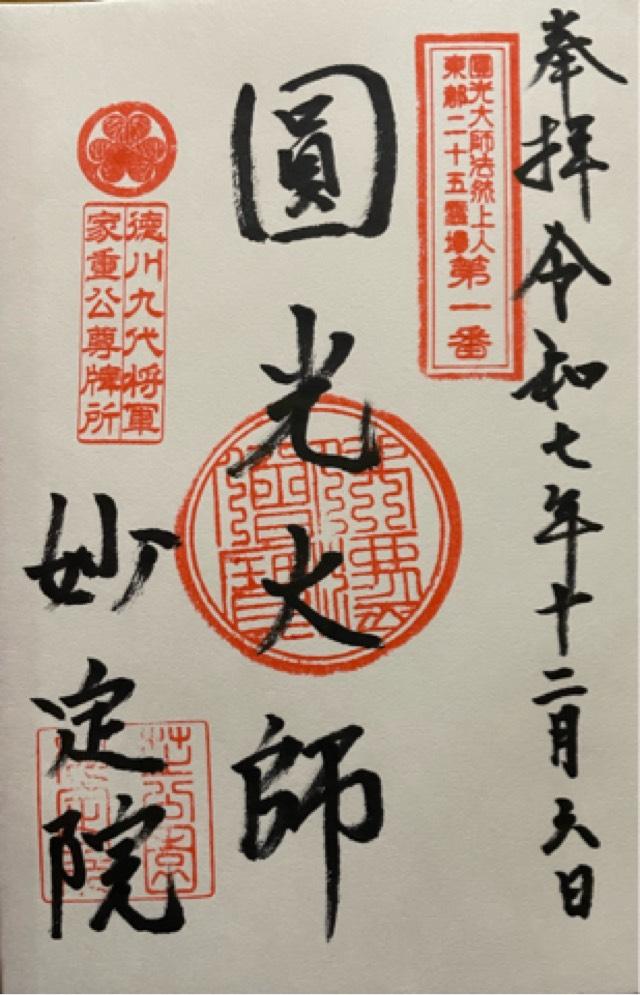 奉拝 令和七年十二月六日
圓光大師法然上人
東都二十五霊場 第一番
圓光大師
徳川九代将軍
家重公尊牌所
妙定院